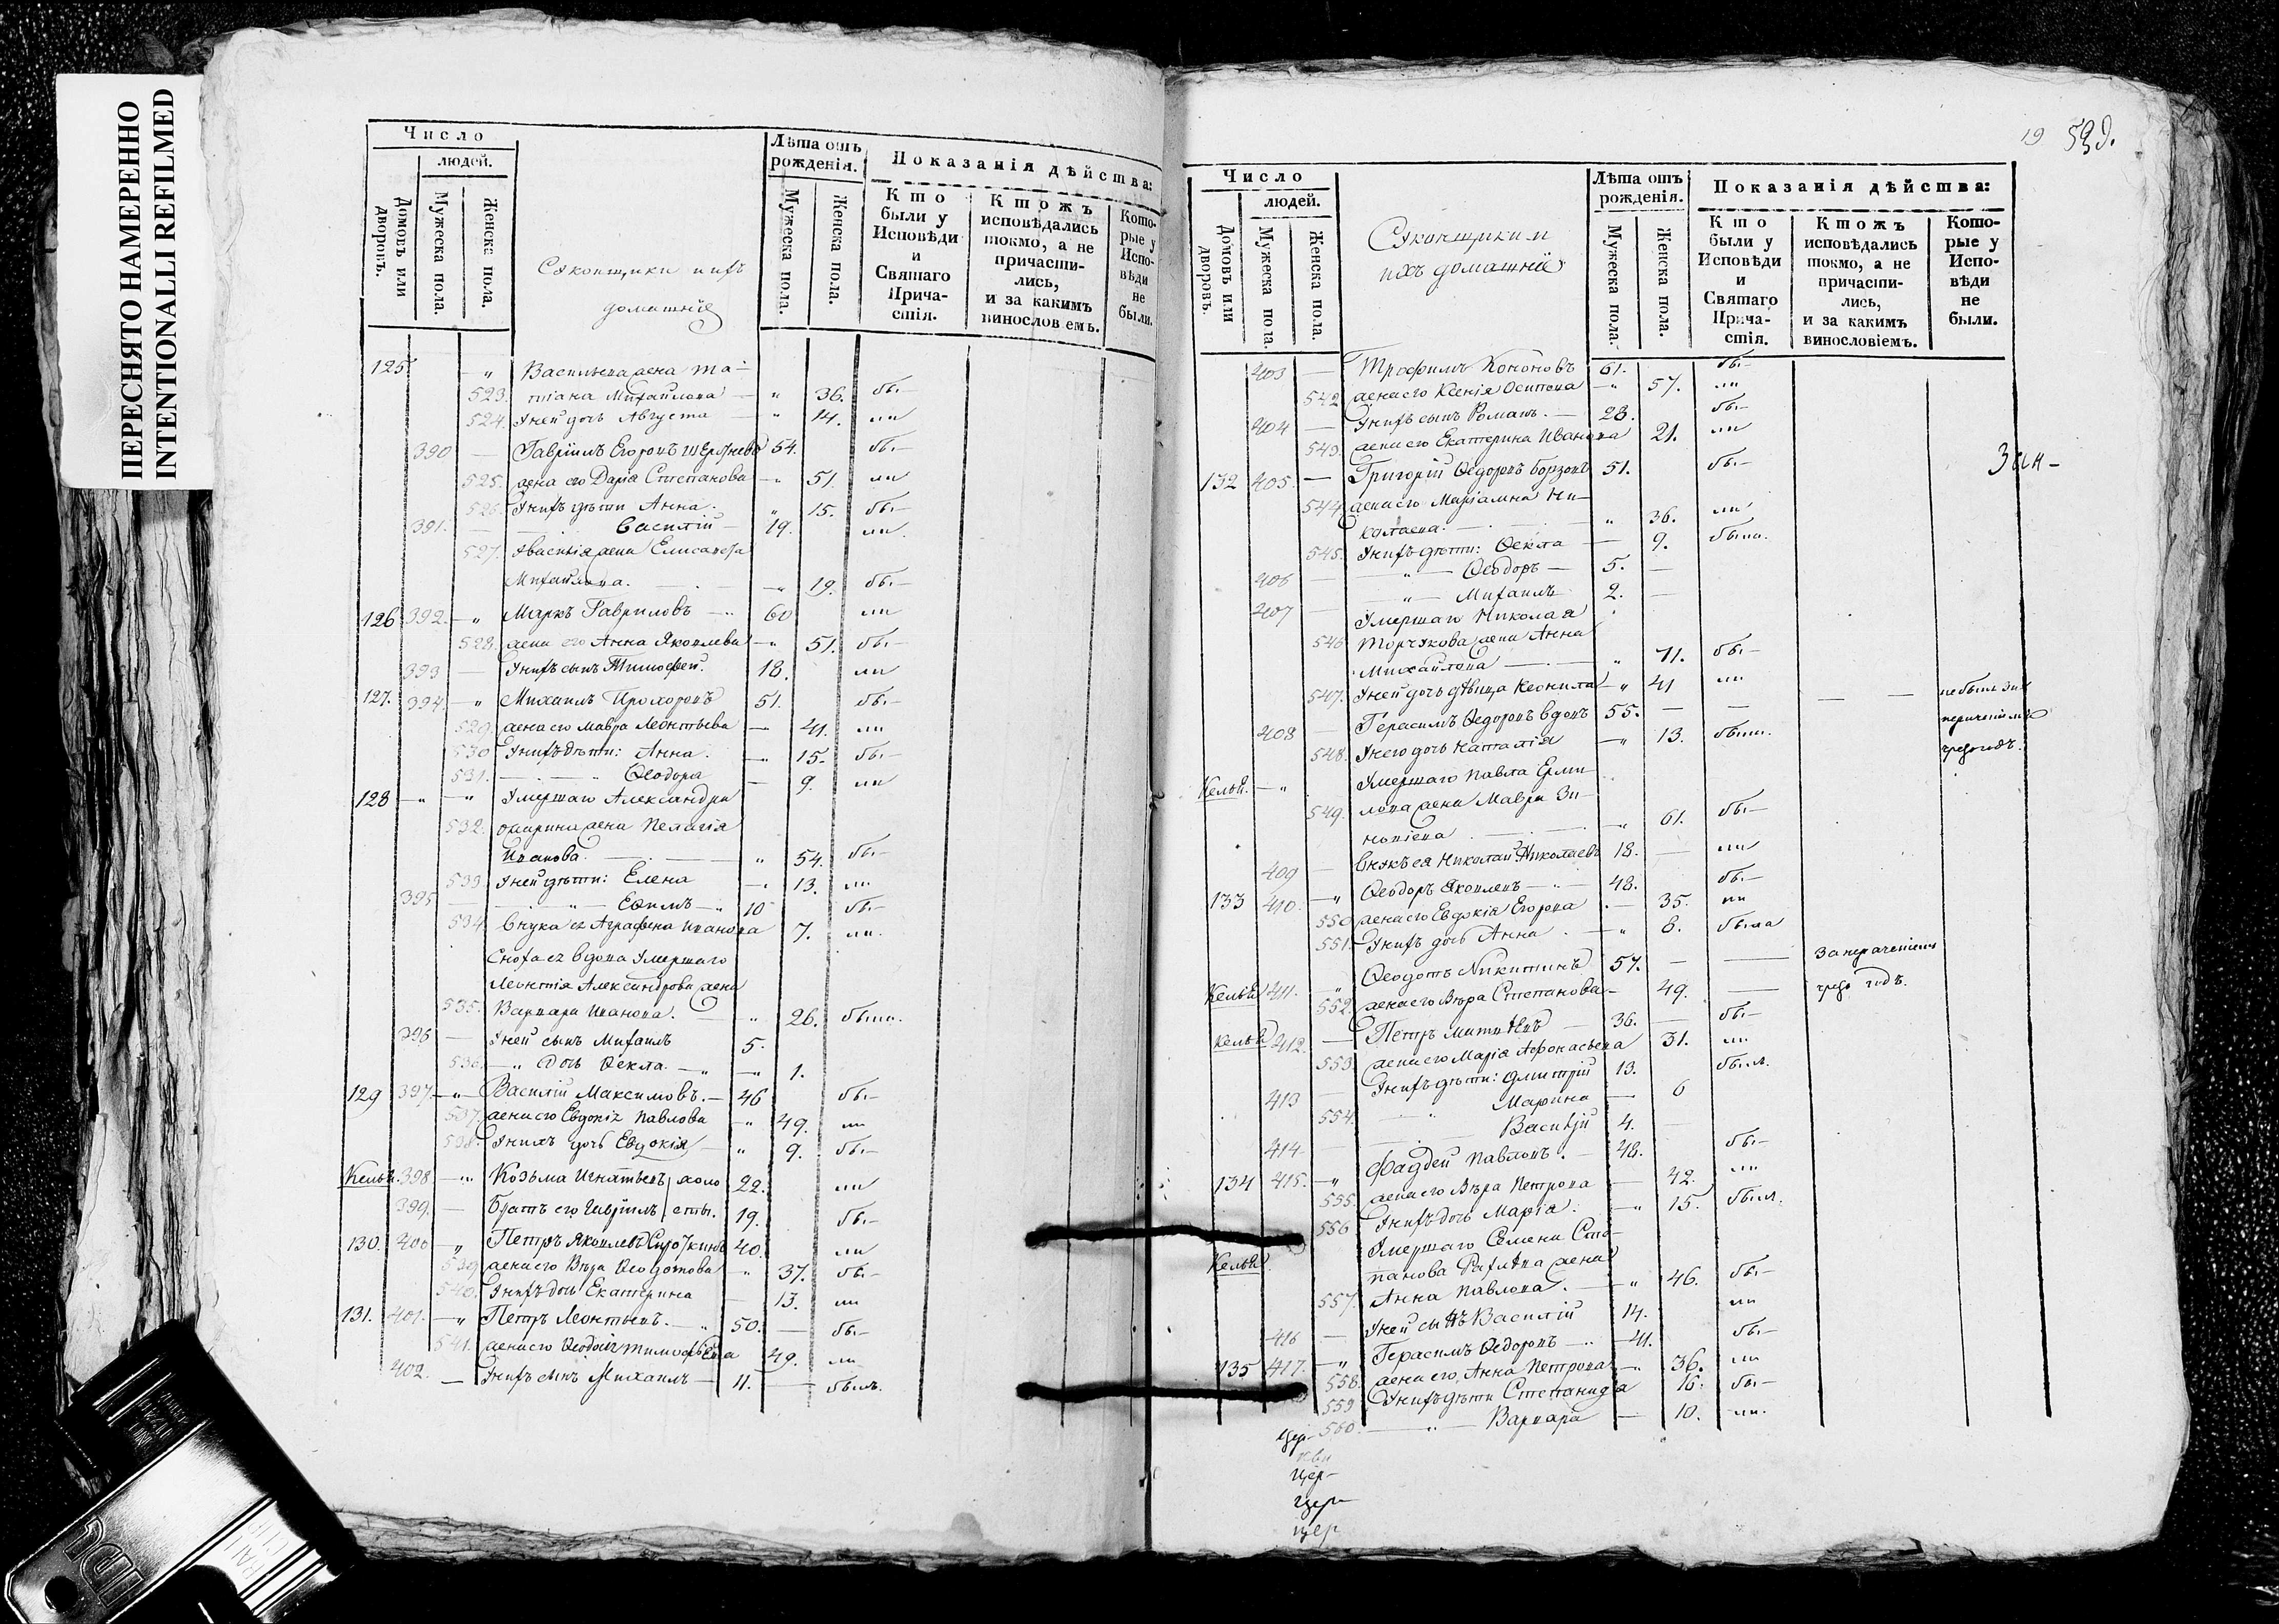 ПЕРЕСНЯТО НАМЕРЕННО
INTENTIONALLI REFILMED
Число
людей.
Домовъ или дворовъ.
Мужеска пола.
Женска пола.
домашніе
Лѣта отъ рожденія.
Мужеска пола.
Женска пола.
Показанія дѣйства:
Кто были у Исповѣди и Святаго Причастія.
Ктожъ исповѣдались токмо, а не причасти-лись, и за какимъ винословіемъ.
Кото-рые у Испо-вѣди не были.
125 " жена та-
523. тіана Михайлова — " 36. бы-
524. У ней дочь Августа — " 14. ли
390 — Гавріилъ Егоровъ 54. бы-
525. жена его Дарія Степанова — " 51. ли
526. У нихъ дѣти Анна. " 15. бы-
391. — Василій — 19. ли.
527. Василія жена Елисавета
Михайлова. — " 19. бы-
126 392. — " Маркъ Гавриловъ — " 60 ли
528. жена его Анна Яковлева — " 51. бы-
393 — У нихъ сынъ Тимофей. 18. ли
127. 394 — " Михаилъ Прохоровъ 51. бы-
529. жена его Мавра Леонтьева — 41. ли
530 У нихъ дѣти: Анна. — " 15. бы-
531. — " Ѳеодора — 9. ли
128 — " — " Умершаго Александра
532. жена Пелагія
Иванова. — " 54. бы-
533. У ней дѣти: Елена — " 13. ли
395 — " — Ефимъ — " 10 бы-
534. Внука ея Аграфена Иванова 7. ли.
Сноха ея вдова Умершаго
Леонтія Александрова жена
535. Варвара Иванова. — " 26. была.
396 — У ней сынъ Михаилъ 5.
536. — " Дочь Ѳекла. — " — " 1.
129 397. — " Василій Максимовъ. — 46 бы-
537. жена его Евдокія Павлова " 49. ли
538. У нихъ дочь Евдокія — " 9. бы-
Келья. 398 — " Козьма Игнатьевъ холо 22. ли
399. — Братъ его Гавріилъ сты. 19. бы-
130. 400 " Петръ Яковлевъ 40. ли
539. жена его Вѣра Ѳеодотова " 37. бы-
540. У нихъ дочь Екатерина — 13. ли
131. 401. — " Петръ Леонтьевъ. — " 50. — бы-
541. жена его Ѳеодосія Тимофѣева 49. ли
402. — У нихъ сынъ Михаилъ — 11. — былъ.
19
Число
людей.
Домовъ или дворовъ.
Мужеска пола.
Женска пола.
ихъ домашніе
Лѣта отъ рожденія.
Мужеска пола.
Женска пола.
Показанія дѣйства:
Кто были у Исповѣди и Святаго Прича-стія.
Ктожъ исповѣдались токмо, а не причасти-лись, и за какимъ винословіемъ.
Кото-рые у Испо-вѣди не были.
403 — Трофимъ Кононовъ 61. бы-
542 жена его Ксенія Осипова — " 57. ли
404 — У нихъ сынъ Романъ. — 28. бы-
543. жена его Екатерина Иванова 21. ли
132 405. — Григорій Ѳедоровъ Борзовъ 51. бы-
544 жена его Маріамна Ни-
колаева. — " 36. ли
545. У нихъ дѣти: Ѳекла — 9. была.
406 — " — Ѳеодоръ — 5. —
407 — " — Михаилъ 2. —
Умершаго Николая
546 жена Анна
Михайлова — " 71. бы-
547. У ней дочь дѣвица Неонила — " 41 ли
408 — Герасимъ Ѳедоровъ вдовъ 55. — — — не былъ за
нераченіемъ
чрезъ годъ.
548. У него дочь Наталія — " 13. была.
Келья. — " Умершаго Павла Ерми-
549. лова жена Мавра Зи-
новіева — " 61. бы-
409 — Внукъ ея Николай Николаевъ 18. — ли
133 410. — " Ѳеодоръ Яковлевъ — " 48. бы-
550 жена его Евдокія Егорова — 35. ли
551. У нихъ дочь Анна — " 8. была
Келья 411. " Ѳеодотъ Никитинъ 57. — — За нераченіемъ
552. жена его Вѣра Степанова — 49. — чрезъ годъ.
Келья 412. — Петръ — 36. — бы-
553. жена его Марія Афонасьева 31. ли
413 — У нихъ дѣти: Дмитрій 13. былъ.
554. " Марина — 6
414 — Василій 4. —
134 415. — " Фаддей Павловъ. — 48. бы-
555. жена его Вѣра Петрова — 42. ли
556 У нихъ дочь Марія. — " 15. была.
Келья Умершаго Семена Сте-
панова жена
557. Анна Павлова. — " 46. бы-
416 — У ней сынъ Василій 14. ли
135 417. — " Герасимъ Ѳедоровъ — " 41. бы-
558. жена его, Анна Петрова — " 36. ли
559 У нихъ дѣти Степанида 16. бы-
560. — " — Варвара — 10. ли.
цер-
цер-
цер